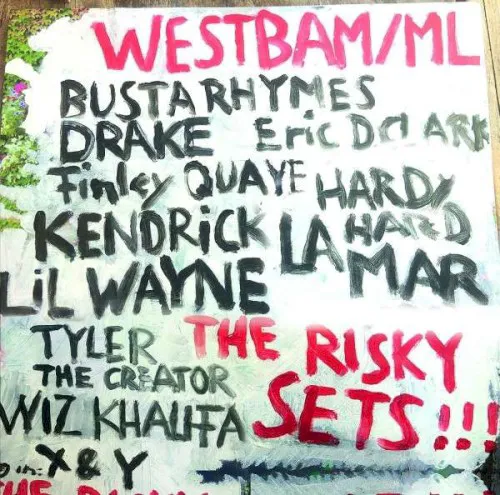 WESTBAM/ML
BUSTA RHYMES
DRAKE Eric D CLARK
Finley QUAYE HARDY
HARD
KENDRICK LAMAR
LIL WAYNE
TYLER THE RISKY
THE CREATOR
SETS!!!
WIZ KHALIFA
X & Y